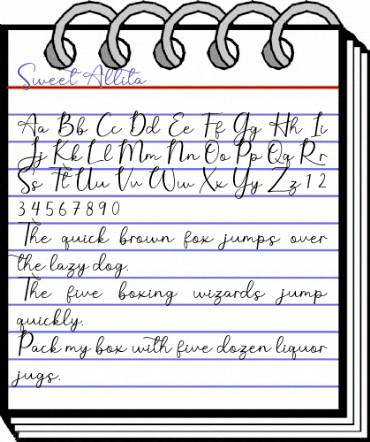 Sweet Allita
Aa Bb Cc Dd Ee Ff Gg Hh Ii
Jj Kk Ll Mm Nn Oo Pp Qq Rr
Ss Tt Uu Vv Ww Xx Yy Zz 1 2
3 4 5 6 7 8 9 0
The quick brown fox jumps over
the lazy dog.
The five boxing wizards jump
quickly.
Pack my box with five dozen liquor
jugs.